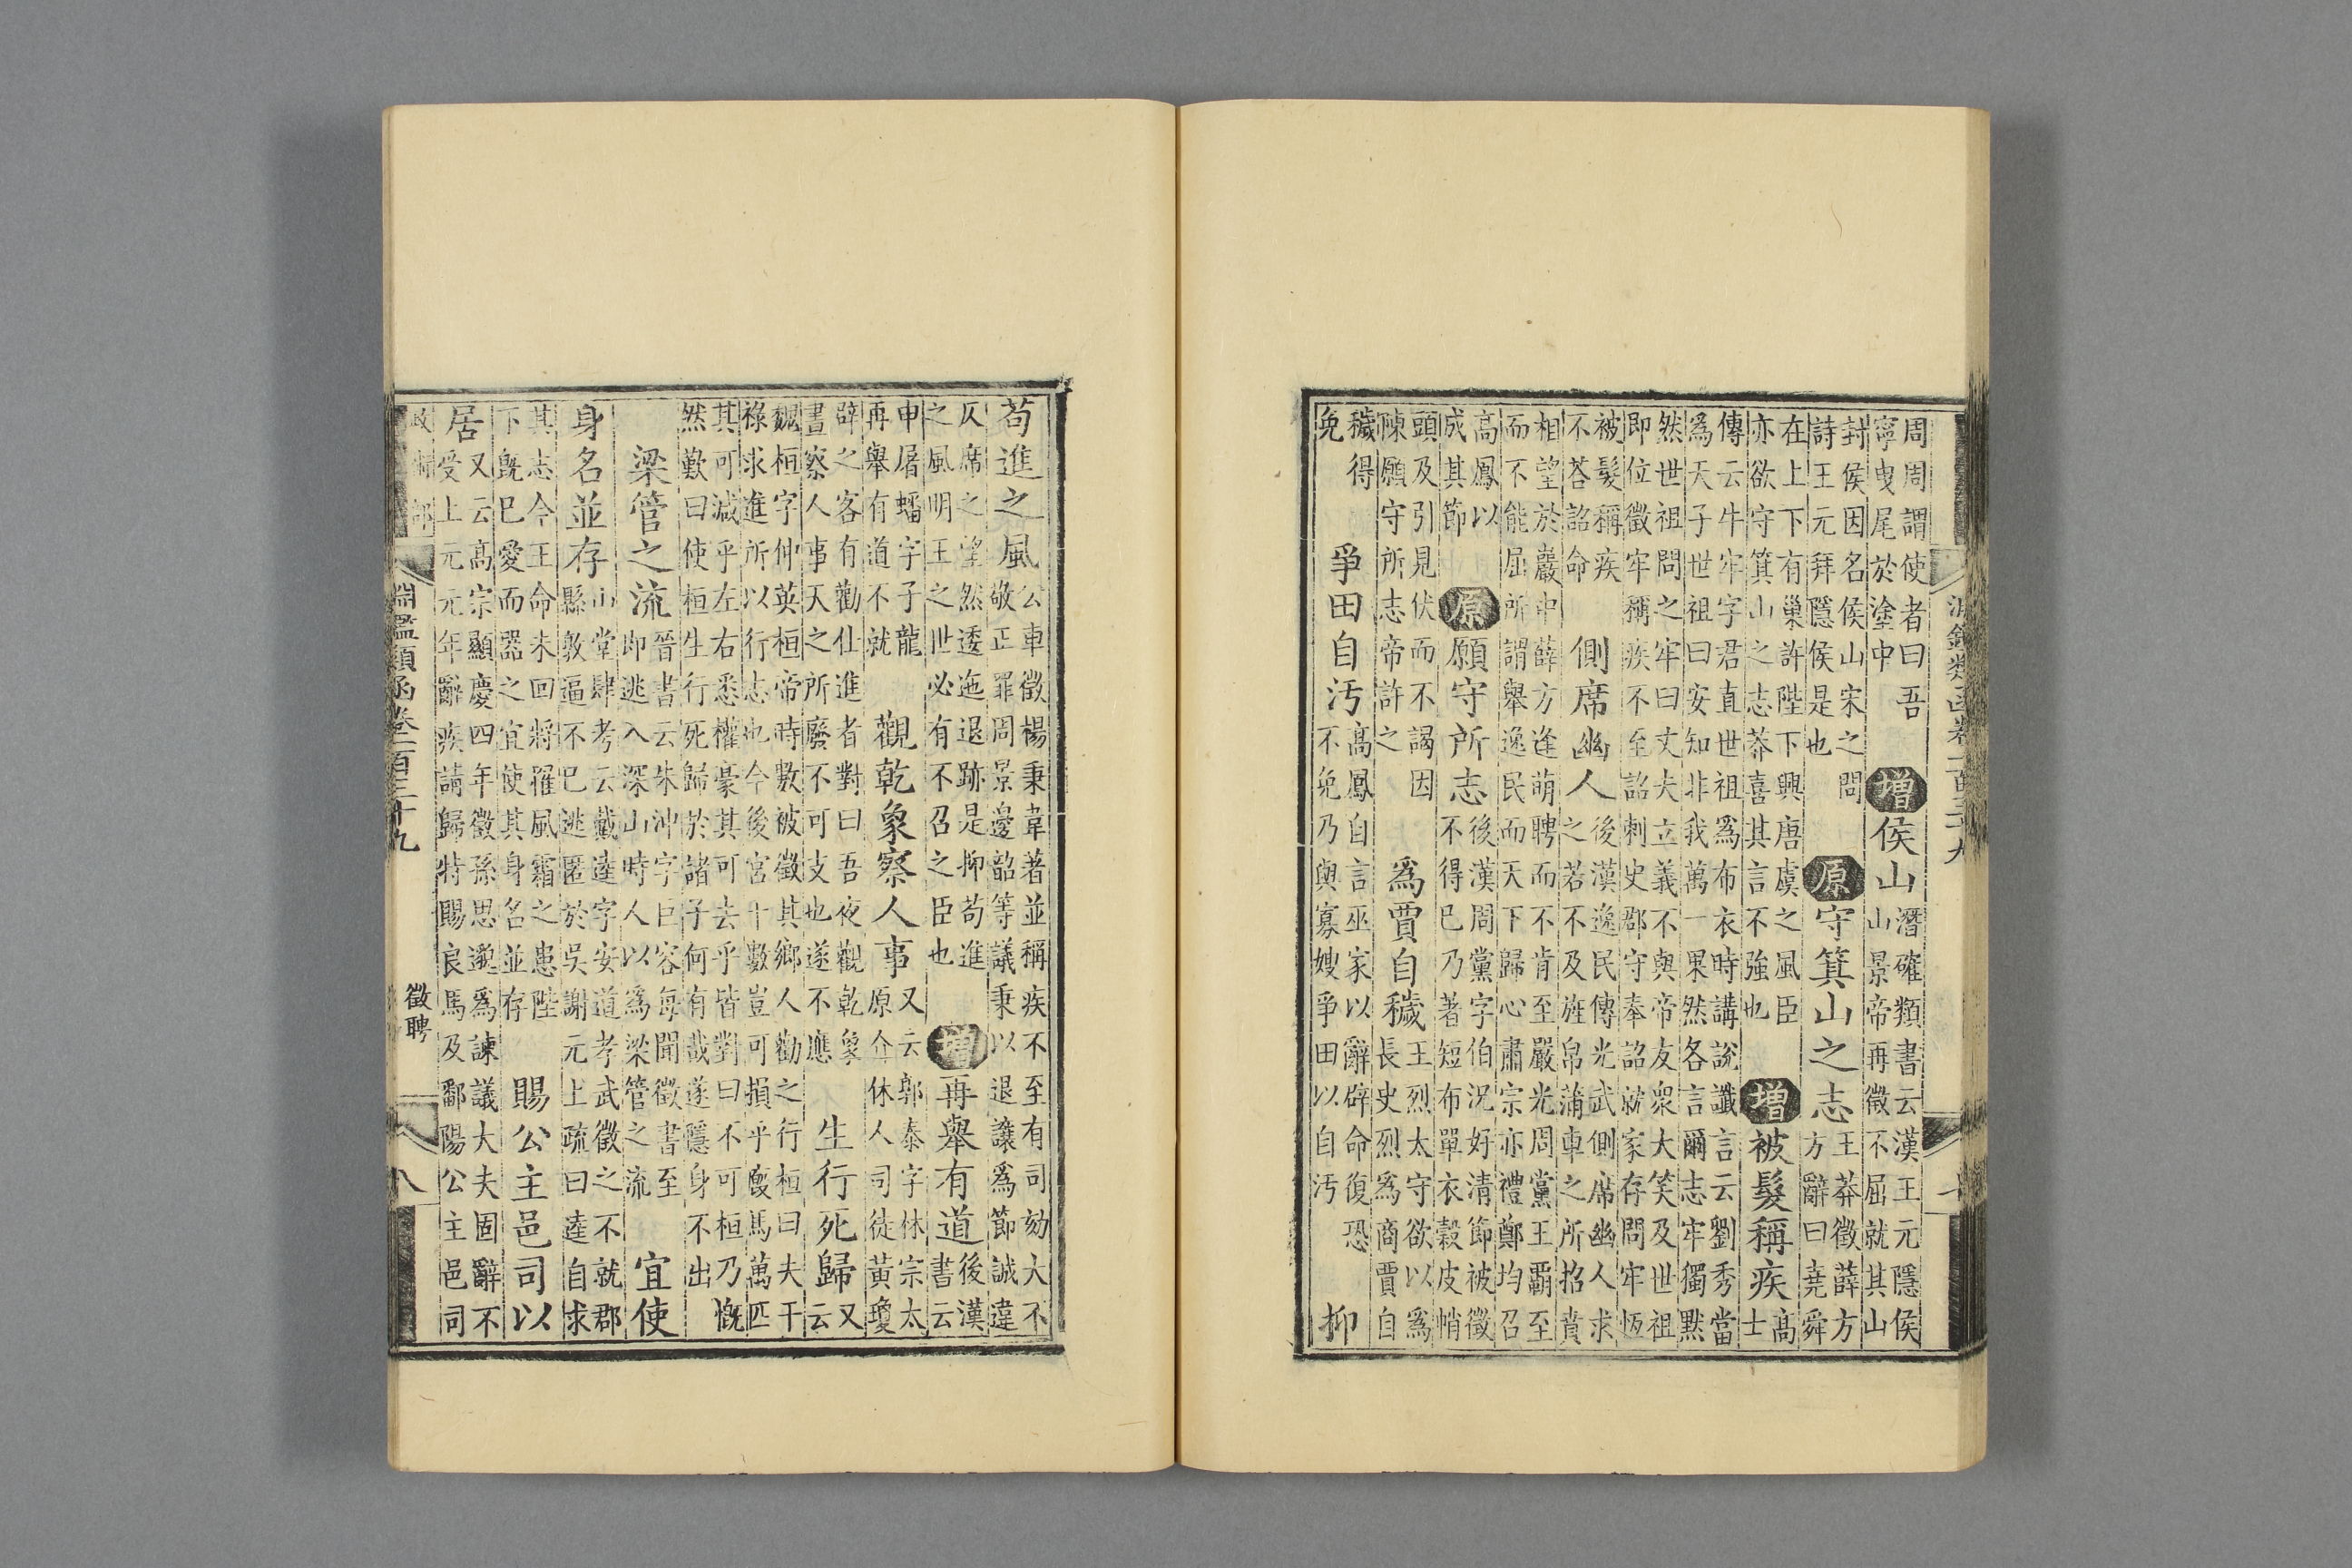 淵鑑類函卷一百三十九
周周謂使者曰吾寧曳尾於塗中 增 侯山 潛確類書云漢王元隱侯山景帝再徵不屈就其山
封侯因名侯山宋之問詩王元拜隱侯是也 原 守箕山之志 王莽徵薛方方辭曰堯舜
在上下有巢許陛下興唐虞之風臣亦欲守箕山之志莽喜其言不強也 增 被髮稱疾 高士
傳云牛牢字君直世祖爲布衣時講說讖言云劉秀當爲天子世祖曰安知非我萬一果然各言爾志牢獨默
然世祖問之牢曰丈夫立義不與帝友衆大笑及世祖即位徵牢稱疾不至詔刺史郡守奉詔就家存問牢恆
被髮稱疾不荅詔命 側席幽人 後漢逸民傳光武側席幽人求之若不及旌帛蒲車之所招賁
相望於巖中薛方逢萌聘而不肯至嚴光周黨王霸至而不能屈所謂舉逸民而天下歸心肅宗亦禮鄭均召
高鳳以成其節 原 願守所志 後漢周黨字伯況好清節被徵不得已乃著短布單衣穀皮帩
頭及引見伏而不謁因陳願守所志帝許之 爲賈自穢 王烈太守欲以爲長史烈爲商賈自
穢得免 爭田自汚 高鳳自言巫家以辭辟命復恐不免乃與寡嫂爭田以自汚 抑
苟進之風 公車徵楊秉韋著並稱疾不至有司劾大不敬正罪周景邊韶等議秉以退讓爲節誠違
仄席之望然逶迤退跡是抑苟進之風明王之世必有不召之臣也 增 再舉有道 後漢書云
申屠蟠字子龍再舉有道不就 觀乾象察人事 又云郭泰字林宗太原介休人司徒黃瓊
辟之客有勸仕進者對曰吾夜觀乾象晝察人事天之所廢不可支也遂不應 生行死歸 又云
魏桓字仲英桓帝時數被徵其鄉人勸之行桓曰夫干祿求進所以行志也今後宮十數豈可損乎廏馬萬匹
其可減乎左右悉權豪其可去乎皆對曰不可桓乃慨然歎曰使桓生行死歸於諸子何有哉遂隱身不出
梁管之流 晉書云朱沖字巨容每聞徵書至即逃入深山時人以爲梁管之流 宜使
身名並存 山堂肆考云戴逵字安道孝武徵之不就郡縣敦逼不已逃匿於吳謝元上疏曰逵自求
其志今王命未回將罹風霜之患陛下既已愛而器之宜使其身名並存 賜公主邑司以
居 又云高宗顯慶四年徵孫思邈爲諫議大夫固辭不受上元元年辭疾請歸特賜良馬及鄱陽公主邑司
淵鑑類函卷一百三十九 徵聘 八